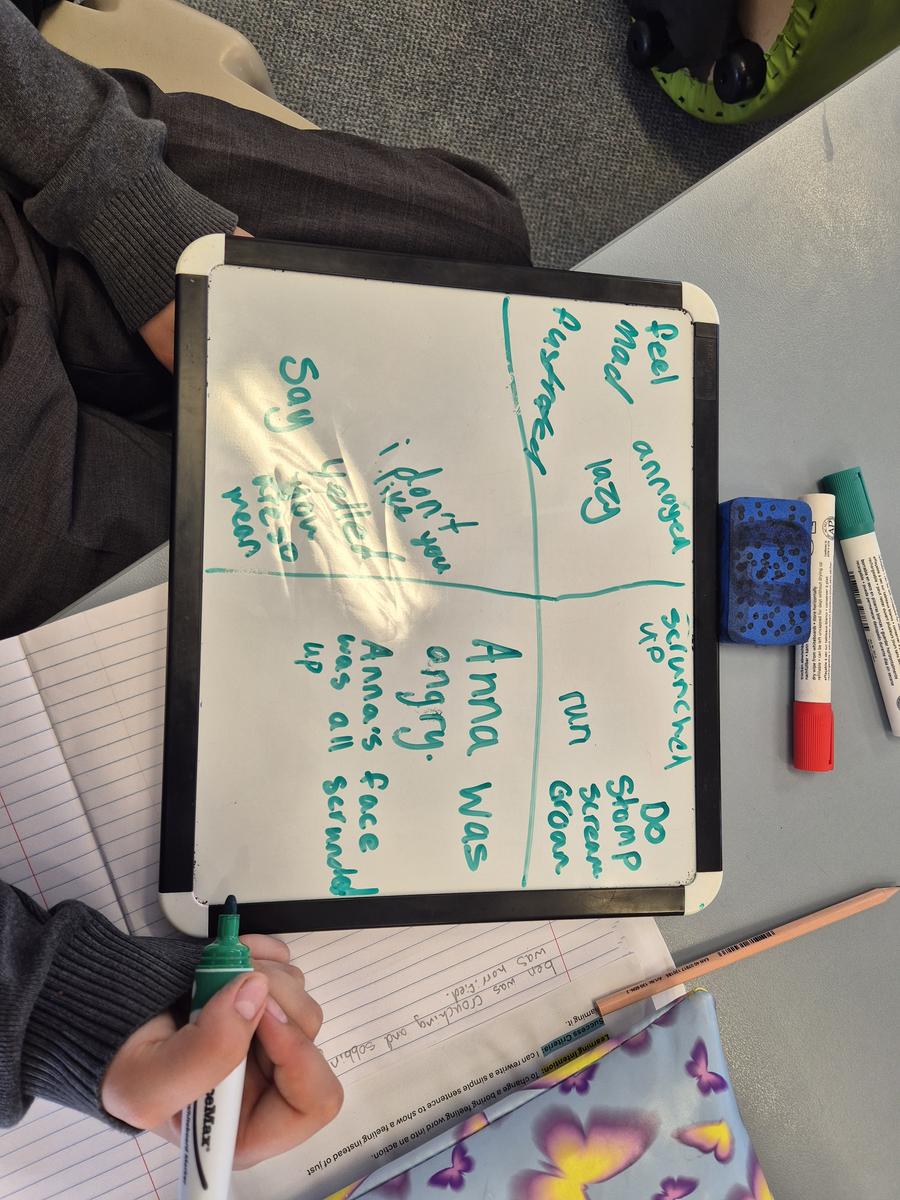 feel
annoyed
Mad
lazy
scrunched
up
Do
Stomp
run
scream
Groan
don't you
i like
yelled
Say
your
mean
Anna was
angry.
Anna's face
was all scrunched
up
ben was crouching and sobbin
was horrified.
Learning Intention: To change a boring feeling word into an action.
Success Criteria: I can rewrite a simple sentence to show a feeling instead of just
naming it.
Whiteboard Marker